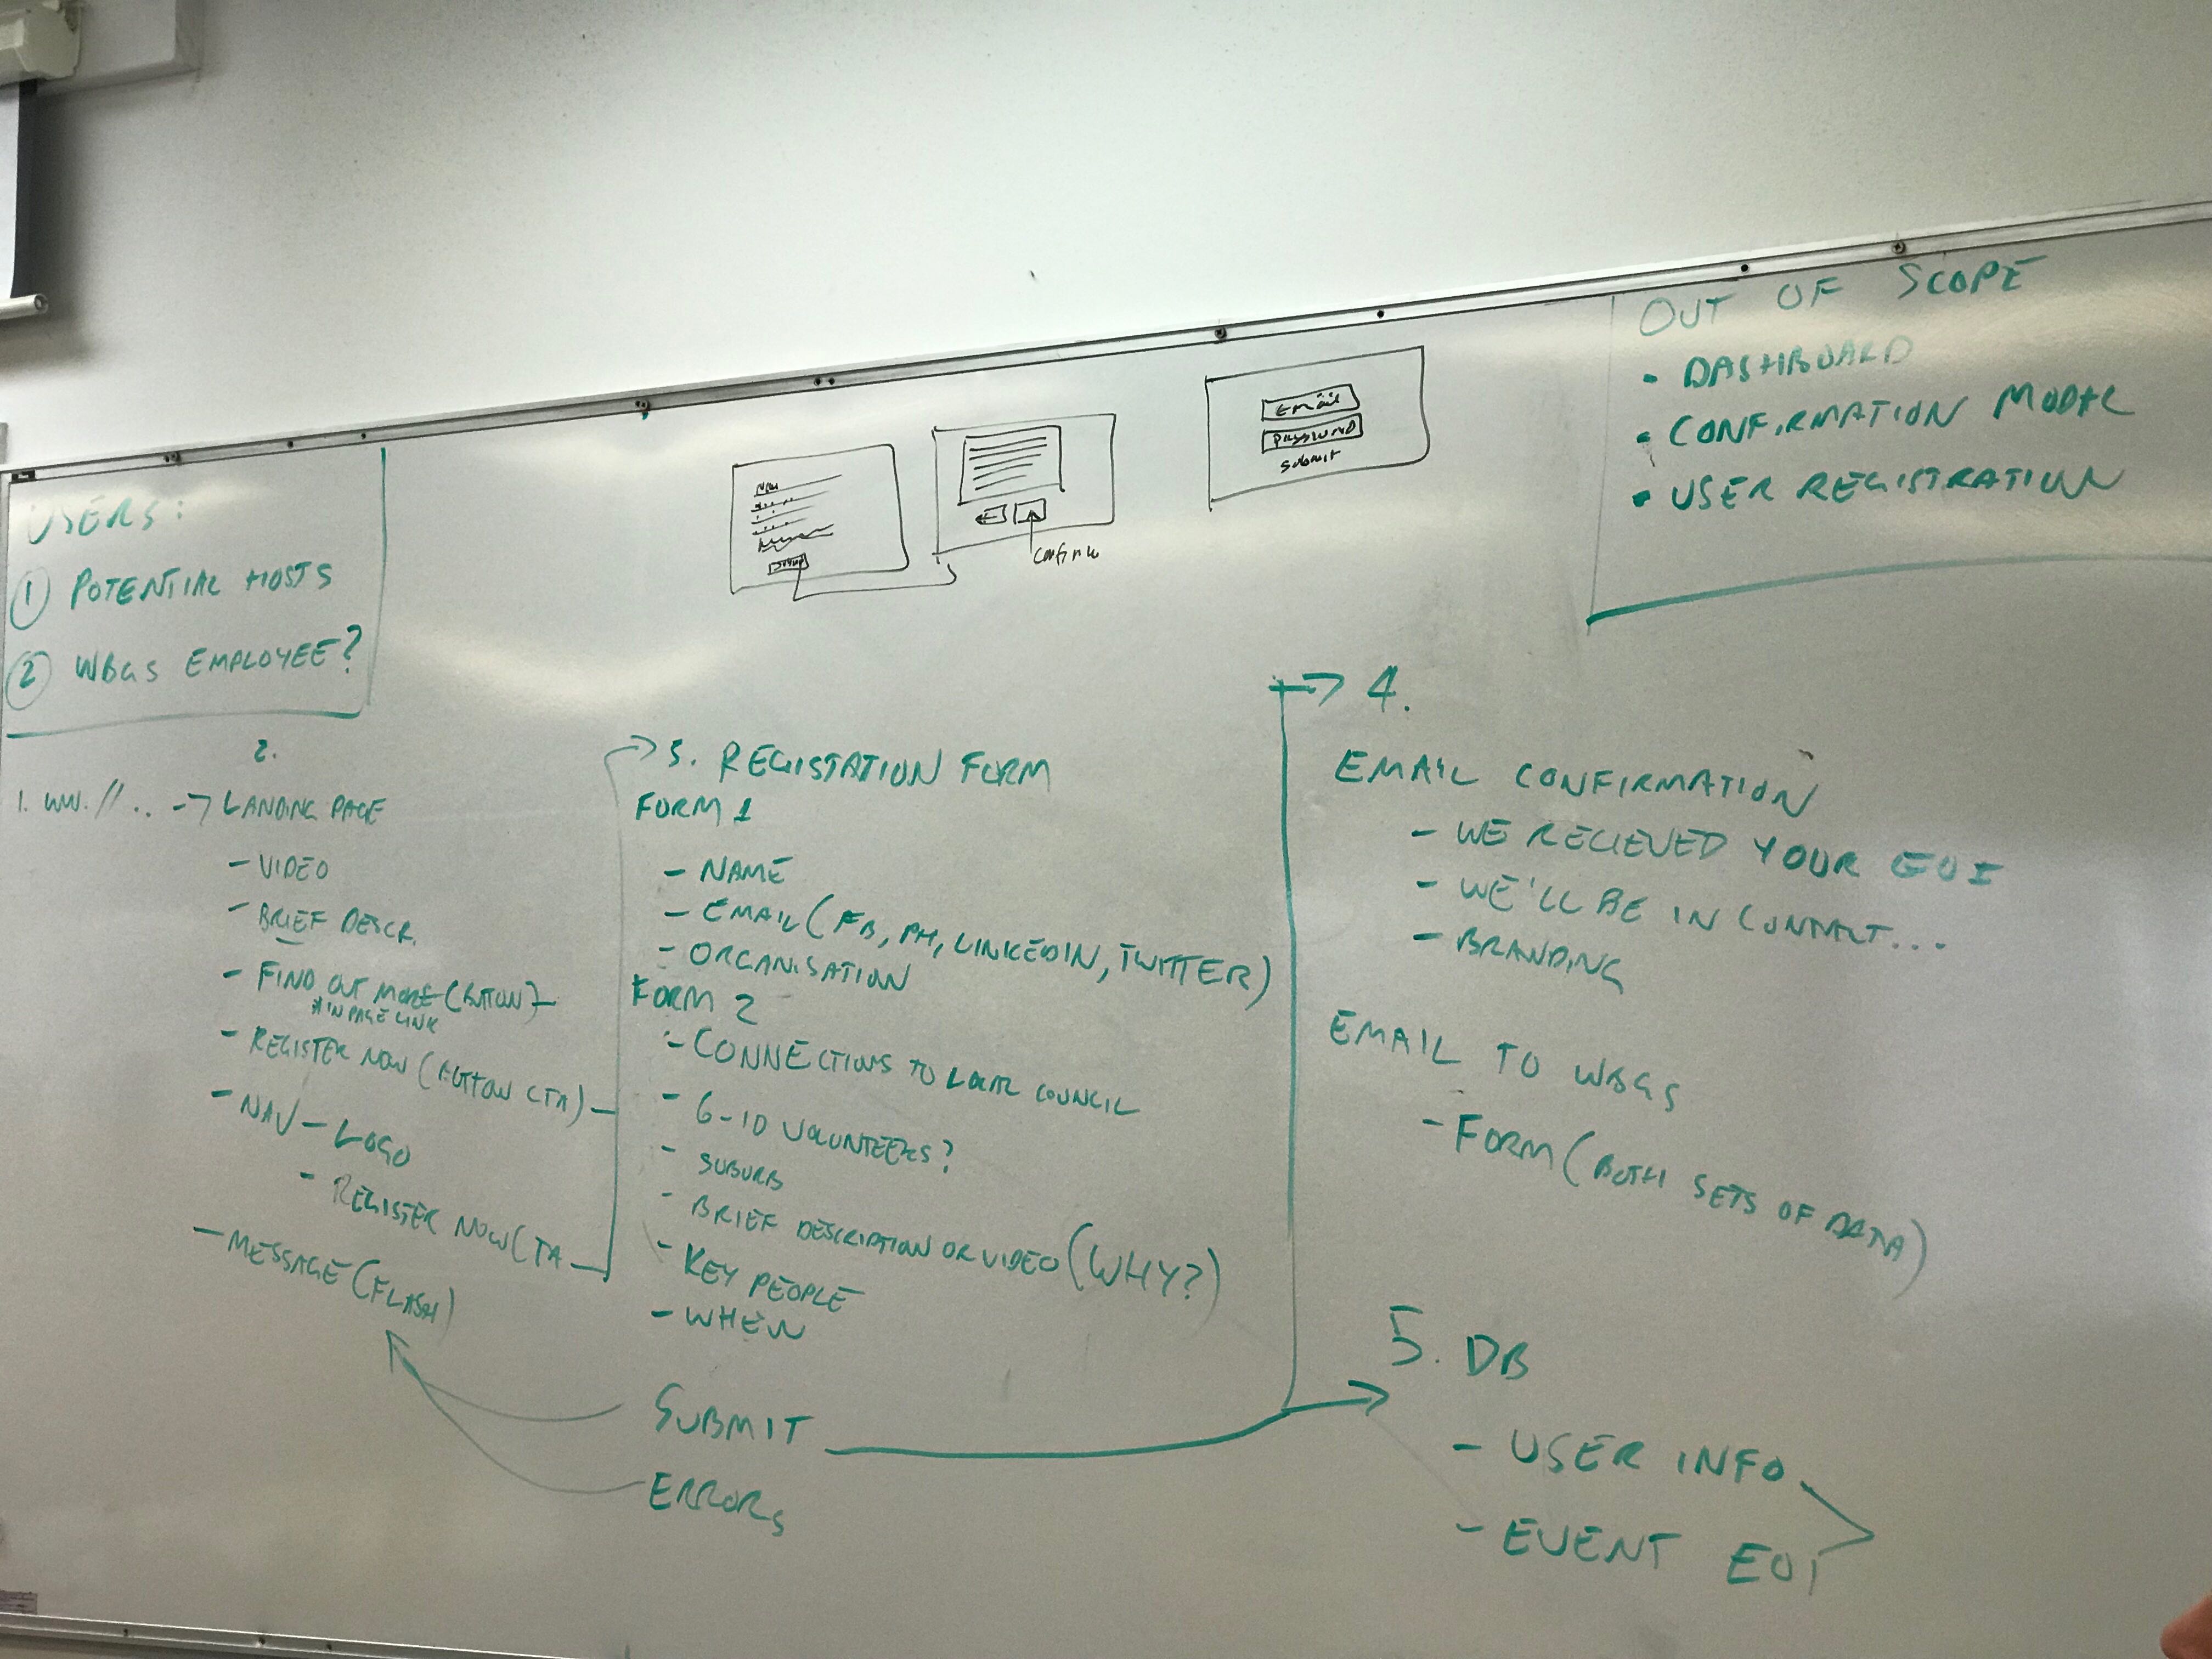 USERS:
① POTENTIAL HOSTS
② WBGS EMPLOYEE?
SUBMIT
CONFIRM
EMAIL
PASSWORD
SUBMIT
OUT OF SCOPE
- DASHBOARD
• CONFIRMATION MODAL
• USER REGISTRATION
2.
1. WW.//.. → LANDING PAGE
- VIDEO
- BRIEF DESCR.
- FIND OUT MORE (BUTTON)
* IN PAGE LINK
- REGISTER NOW (BUTTON CTA)
- NAV - LOGO
- REGISTER NOW CTA
- MESSAGE (FLASH)
3. REGISTATION FORM
FORM 1
- NAME
- EMAIL (FB, PH, LINKEDIN, TWITTER)
- ORGANISATION
FORM 2
- CONNECTIONS TO LOCAL COUNCIL
- 6-10 VOLUNTEERS?
- SUBURB
- BRIEF DESCRIPTION OR VIDEO (WHY?)
- KEY PEOPLE
- WHEN
SUBMIT
ERRORS
→ 4.
EMAIL CONFIRMATION
- WE RECIEVED YOUR EOI
- WE'LL BE IN CONTACT...
- BRANDING
EMAIL TO WBGS
- FORM (BOTH SETS OF DATA)
5. DB
- USER INFO
- EVENT EOI